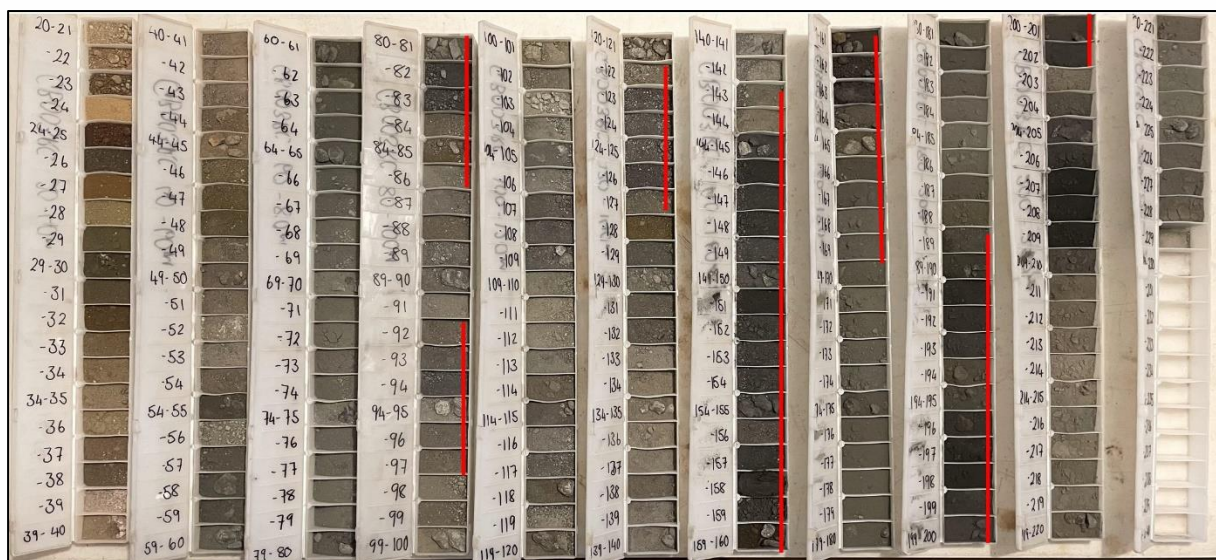 20-21
-22
-23
-24
24-25
-26
-27
-28
-29
29-30
-31
-32
-33
-34
34-35
-36
-37
-38
-39
39-40
40-41
-42
-43
-44
44-45
-46
-47
-48
-49
49-50
-51
-52
-53
-54
54-55
-56
-57
-58
-59
59-60
60-61
-62
-63
-64
64-65
-66
-67
-68
-69
69-70
-71
-72
-73
-74
74-75
-76
-77
-78
-79
79-80
80-81
-82
-83
-84
84-85
-86
-87
-88
-89
89-90
-91
-92
-93
-94
94-95
-96
-97
-98
-99
99-100
100-101
-102
-103
-104
-106
-107
-108
-109
109-110
-111
-112
-113
-114
114-115
-116
-117
-118
-119
119-120
120-121
-122
-123
-124
124-125
-126
-127
-128
-129
129-130
-131
-132
-133
-134
134-135
-136
-137
-138
-139
139-140
140-141
-142
-143
-144
144-145
-146
-147
-148
-149
149-150
-151
-152
-153
-154
154-155
-156
-157
-158
-159
159-160
-167
-168
-169
-171
-172
-173
-174
-176
-177
-178
-179
179-180
-182
-183
-184
-186
-187
-188
-189
-191
-192
-193
-194
194-195
-196
-197
-198
-199
199-200
200-201
-202
-203
-204
-206
-207
-208
-209
-211
-212
-213
-214
214-215
-216
-217
-218
-219
-222
-223
-224
-226
-227
-228
-229